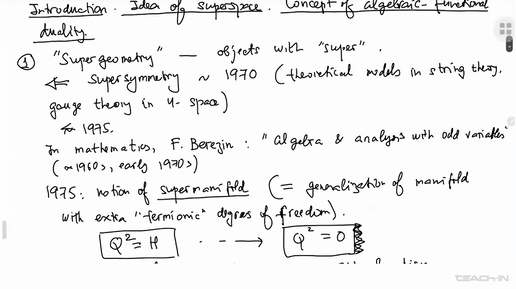 Introduction. Idea of superspace. Concept of algebraic-functional
duality
① "Supergeometry" — objects with "super".
⇐ supersymmetry ~ 1970 (theoretical models in string theory,
gauge theory in 4-space)
≈ 1975.
In mathematics, F. Berezin: "algebra & analysis with odd variables"
(~1960s, early 1970s)
1975: notion of supermanifold (= generalization of manifold
with extra "fermionic" degrees of freedom).
Q² = H - - → Q² = 0
TEACH-IN